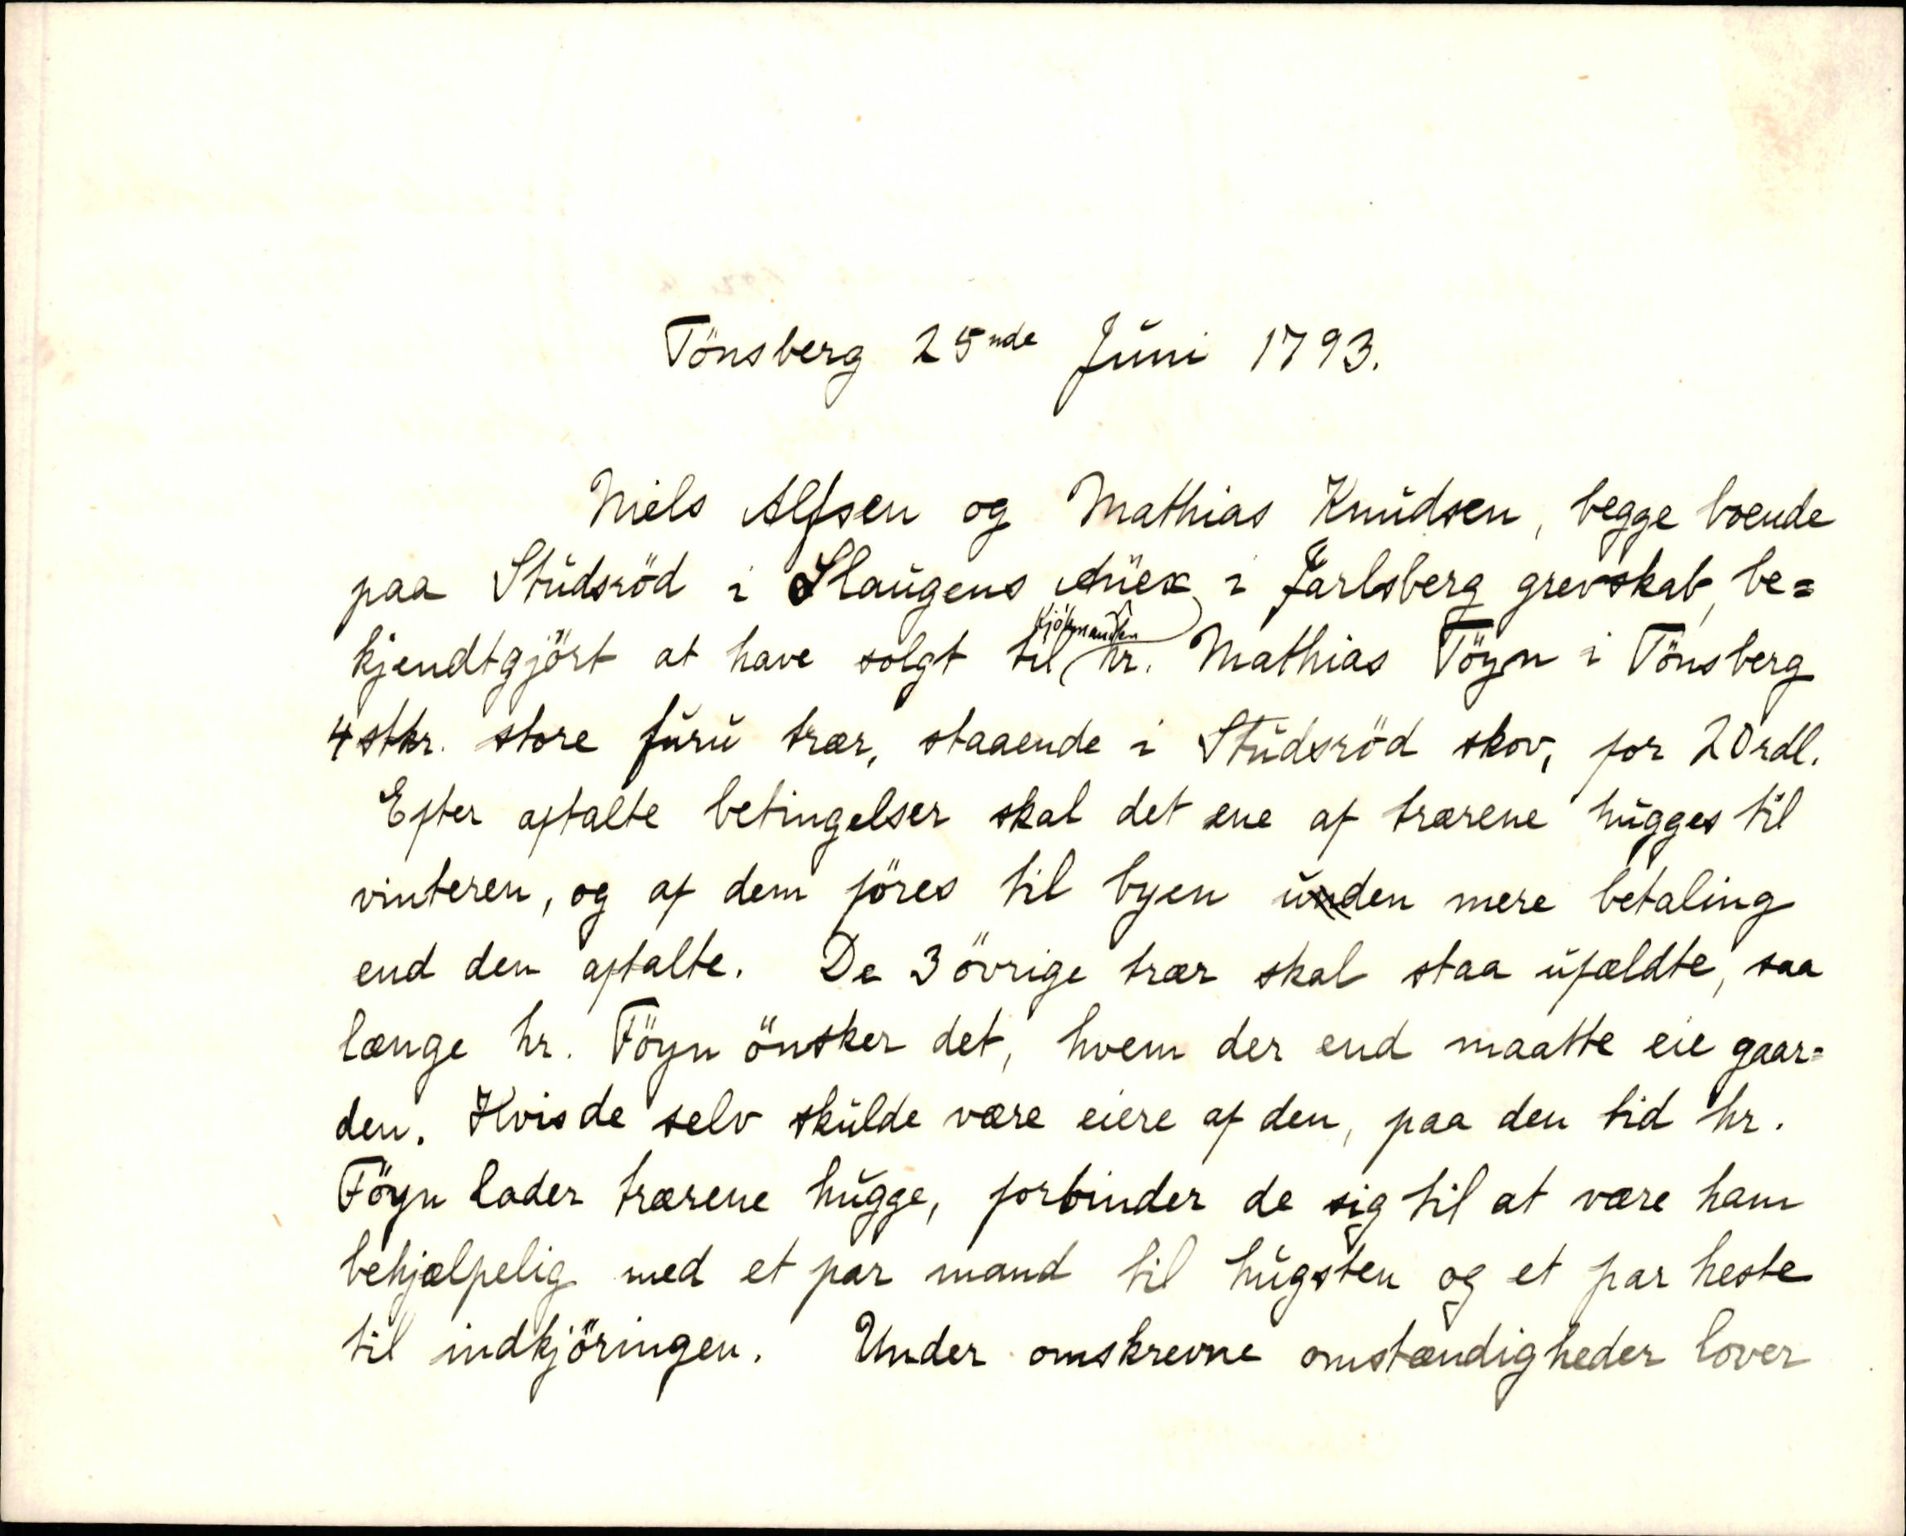 Tönsberg 25nde Juni 1793.
Niels Alfsen og Mathias Knudsen, begge boende
paa Studsröd i Slaugens Anex i Jarlsberg grevskab, be=
kjendtgjört at have solgt til kjöpmanden hr. Mathias Föyn i Tönsberg
4 stkr. store furu trær, staaende i Studsröd skov, for 20 rdl.
Efter aftalte betingelser skal det ene af trærene hugges til
vinteren, og af dem föres til byen unden mere betaling
end den aftalte. De 3 övrige trær skal staa ufældte, saa
længe hr. Föyn önsker det, hvem der end maatte eie gaar=
den. Hvis de selv skulde være eiere af den, paa den tid hr.
Föyn lader trærene hugge, forbinder de sig til at være ham
behjælpelig med et par mand til hugsten og et par heste
til indkjöringen. Under omskrevne omstændigheder lover